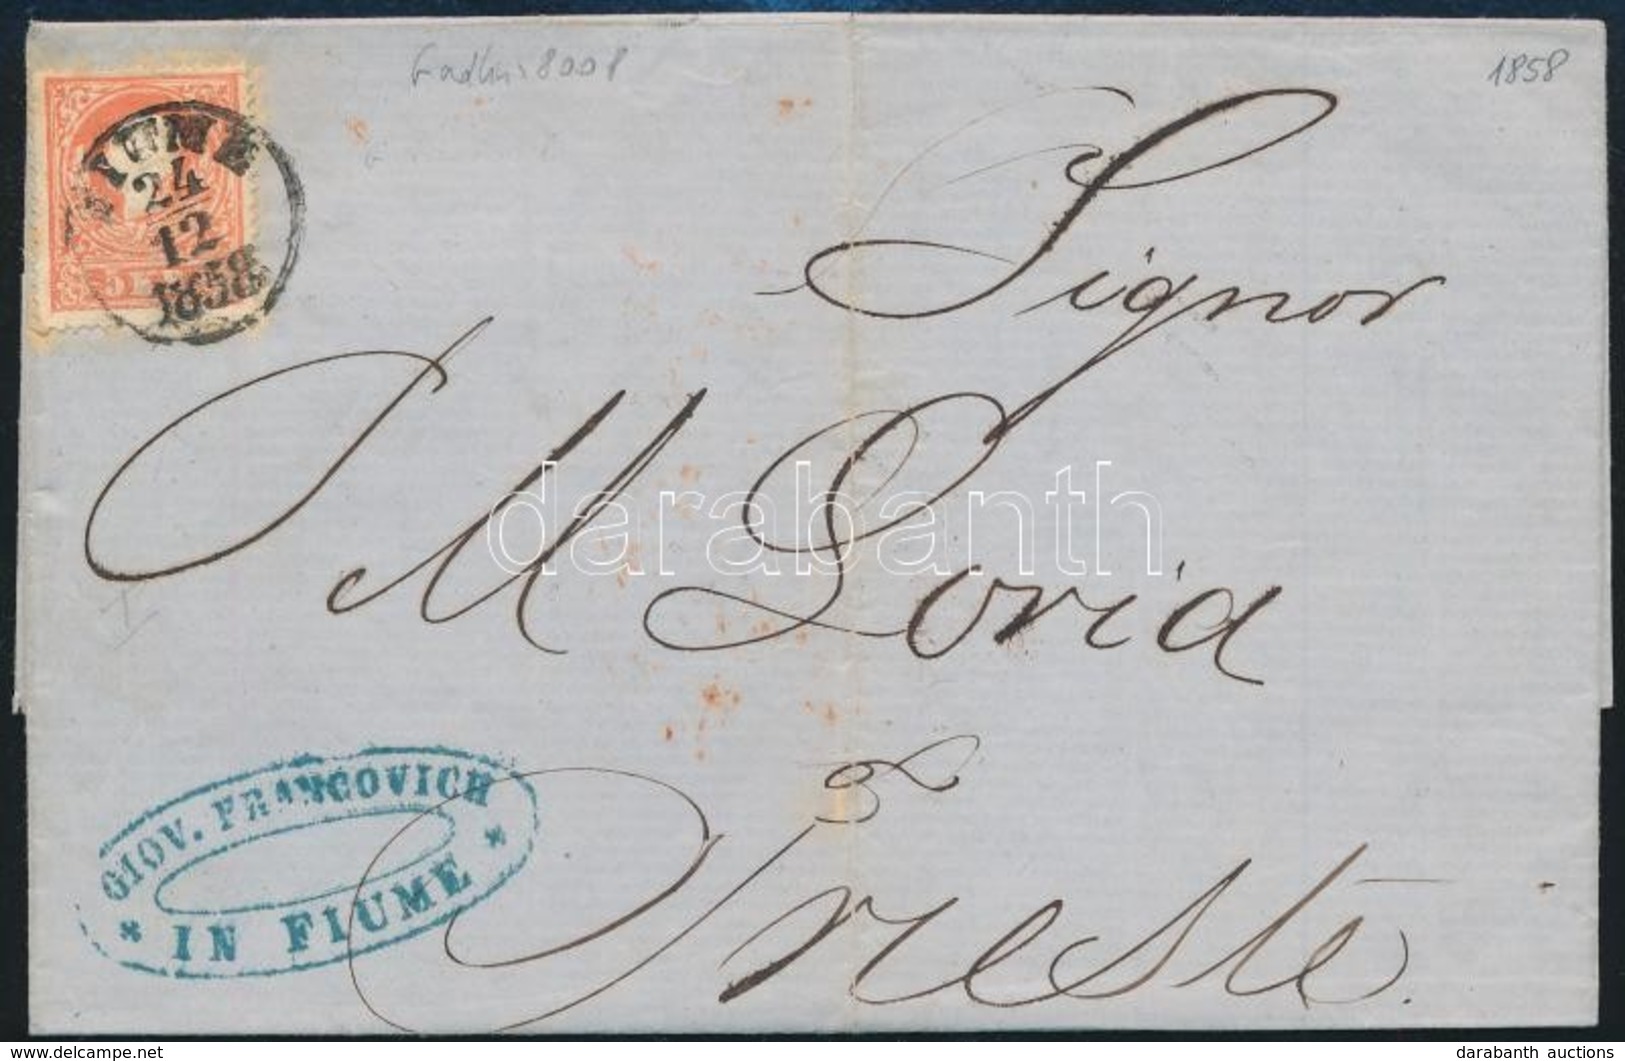 1858
FIUME
24
12
1858
5
Signor
M Loria
Trieste.
darabanth
GIOV. FRANCOVICH
* IN FIUME *
delcampe.net
darabanth auctions